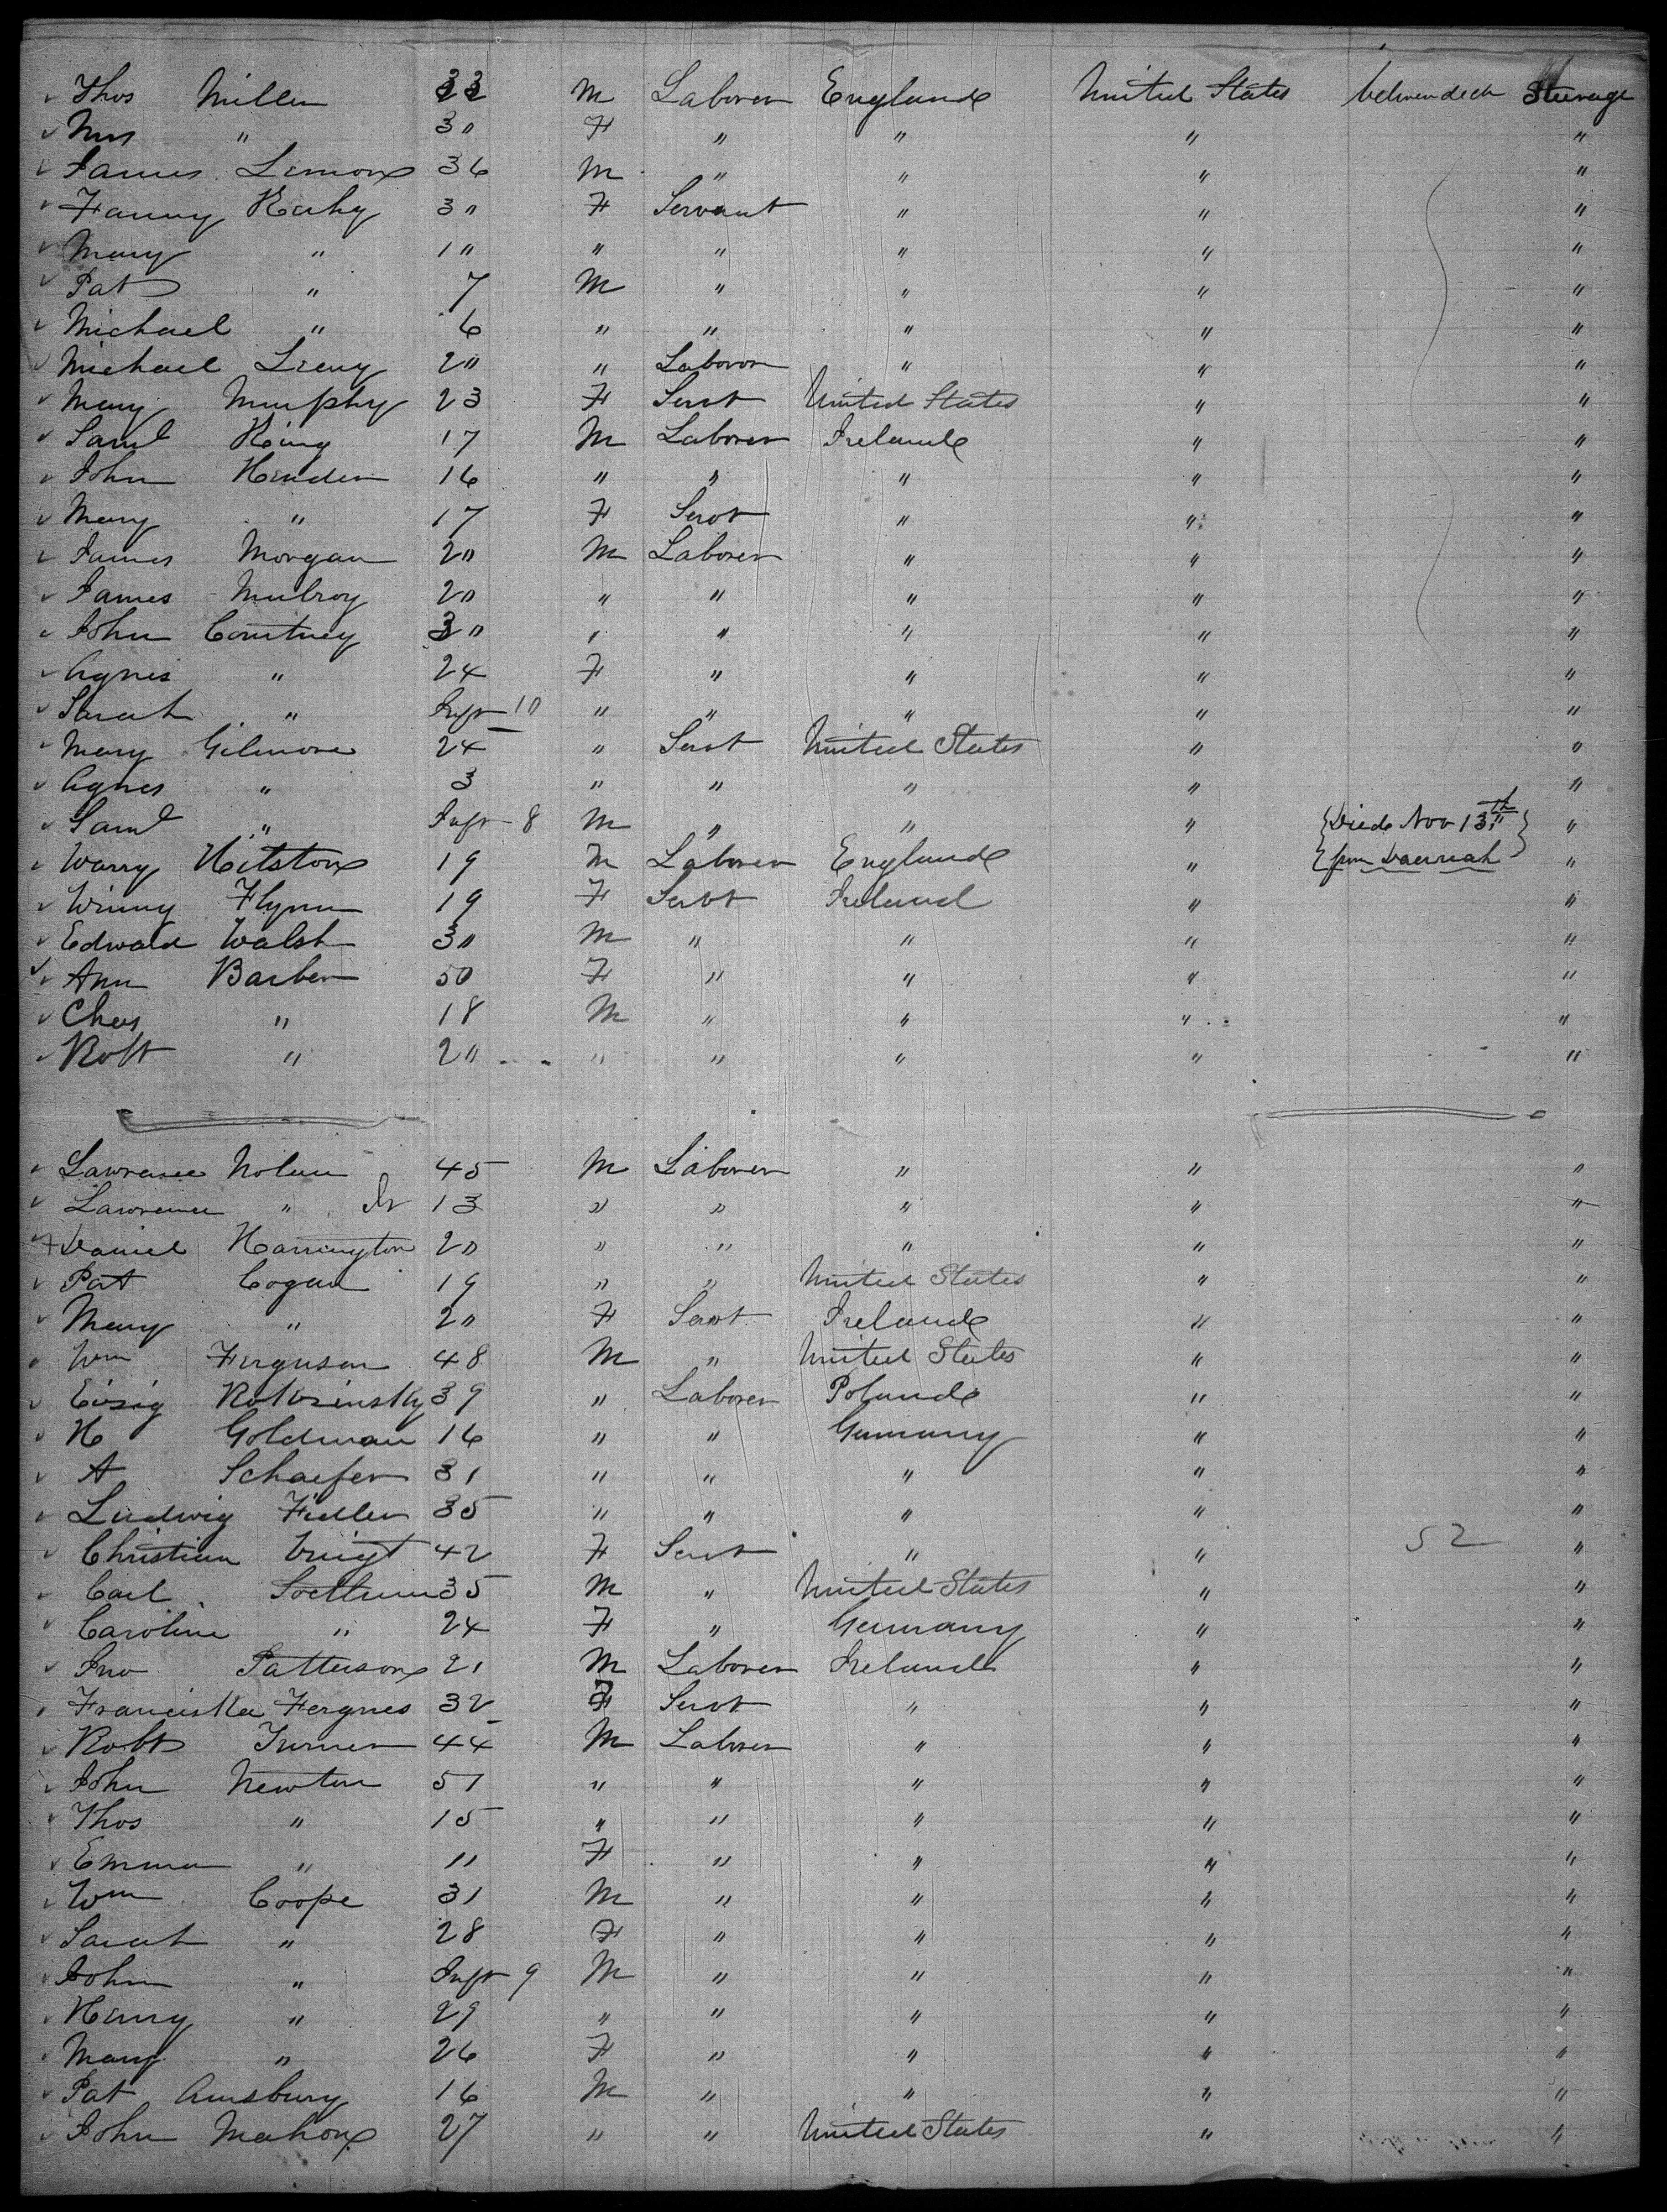 Thos Miller 33 M Laborer England United States betweendeck Steerage
Mrs " 30 F " " " "
James Lemon 36 M " " " "
Fanny 30 F Servant " " "
Mary " 10 " " " " "
Pat " 7 M " " " "
Michael " 6 " " " " "
Michael 20 " Laborer " " "
Mary Murphy 23 F Servt United States " "
Saml King 17 M Laborer Ireland " "
John 16 " " " " "
Mary " 17 F Servt " " "
James Morgan 20 M Laborer " " "
James Mulroy 20 " " " " "
John Courtney 30 " " " " "
Agnes " 24 F " " " "
Sarah " Inft 10 " " " " "
Mary Gilmore 24 " Servt United States " "
Agnes " 3 " " " " "
Saml " Inft 8 M " " " {Died Nov 13th} "
Harry 19 M Laborer England " {from "
Winny Flynn 19 F Servt Ireland " "
Edward Walsh 30 M " " " "
Ann Barber 50 F " " " "
Chas " 18 M " " " "
Robt " 20 " " " " "
Lawrence Nolan 45 M Laborer " " "
Lawrence " Jr 13 " " " " "
Daniel Harrington 20 " " " " "
Pat Cogan 19 " " United States " "
Mary " 20 F Servt Ireland " "
Wm Ferguson 48 M " United States " "
39 " Laborer Poland " "
H Goldman 16 " " Germany " "
A Schaefer 31 " " " " "
Ludwig Fidler 35 " " " " "
Christian Voigt 42 F Servt " " 52 "
Carl 35 M " United States " "
Caroline " 24 F " Germany " "
Jno Patterson 21 M Laborer Ireland " "
Franciska Fergnes 32 F Servt " " "
Robt Turner 44 M Laborer " " "
John Newton 51 " " " " "
Thos " 15 " " " " "
Emma " 11 F " " " "
Wm Coope 31 M " " " "
Sarah " 28 F " " " "
John " Inft 9 M " " " "
Henry " 29 " " " " "
Mary " 26 F " " " "
Pat Ainsbury 16 M " " " "
John Mahon 27 " " United States " "